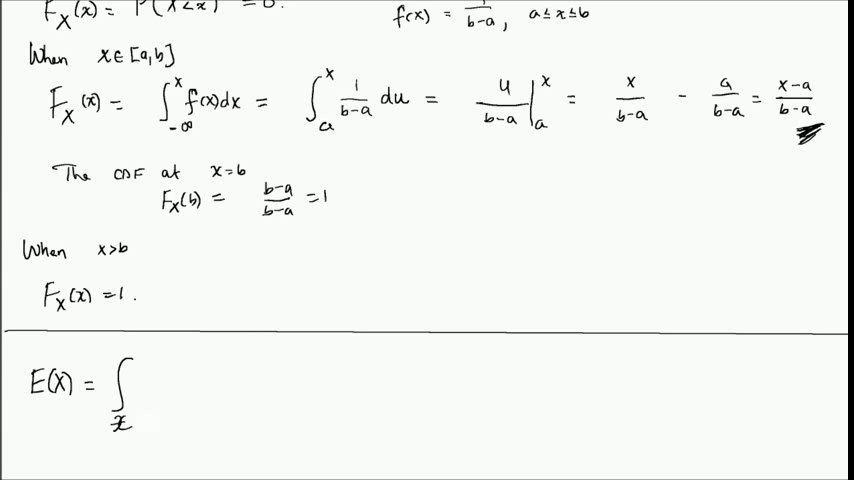 F_X(x) = P(X<x) = 0. f(x) = 1/(b-a), a≤x≤b
When x∈[a,b]
F_X(x) = ∫_{-∞}^{x} f(x)dx = ∫_{a}^{x} 1/(b-a) du = u/(b-a) |_{a}^{x} = x/(b-a) - a/(b-a) = (x-a)/(b-a)
The CDF at x=b
F_X(b) = (b-a)/(b-a) = 1
When x>b
F_X(x) = 1.
E(X) = ∫_x